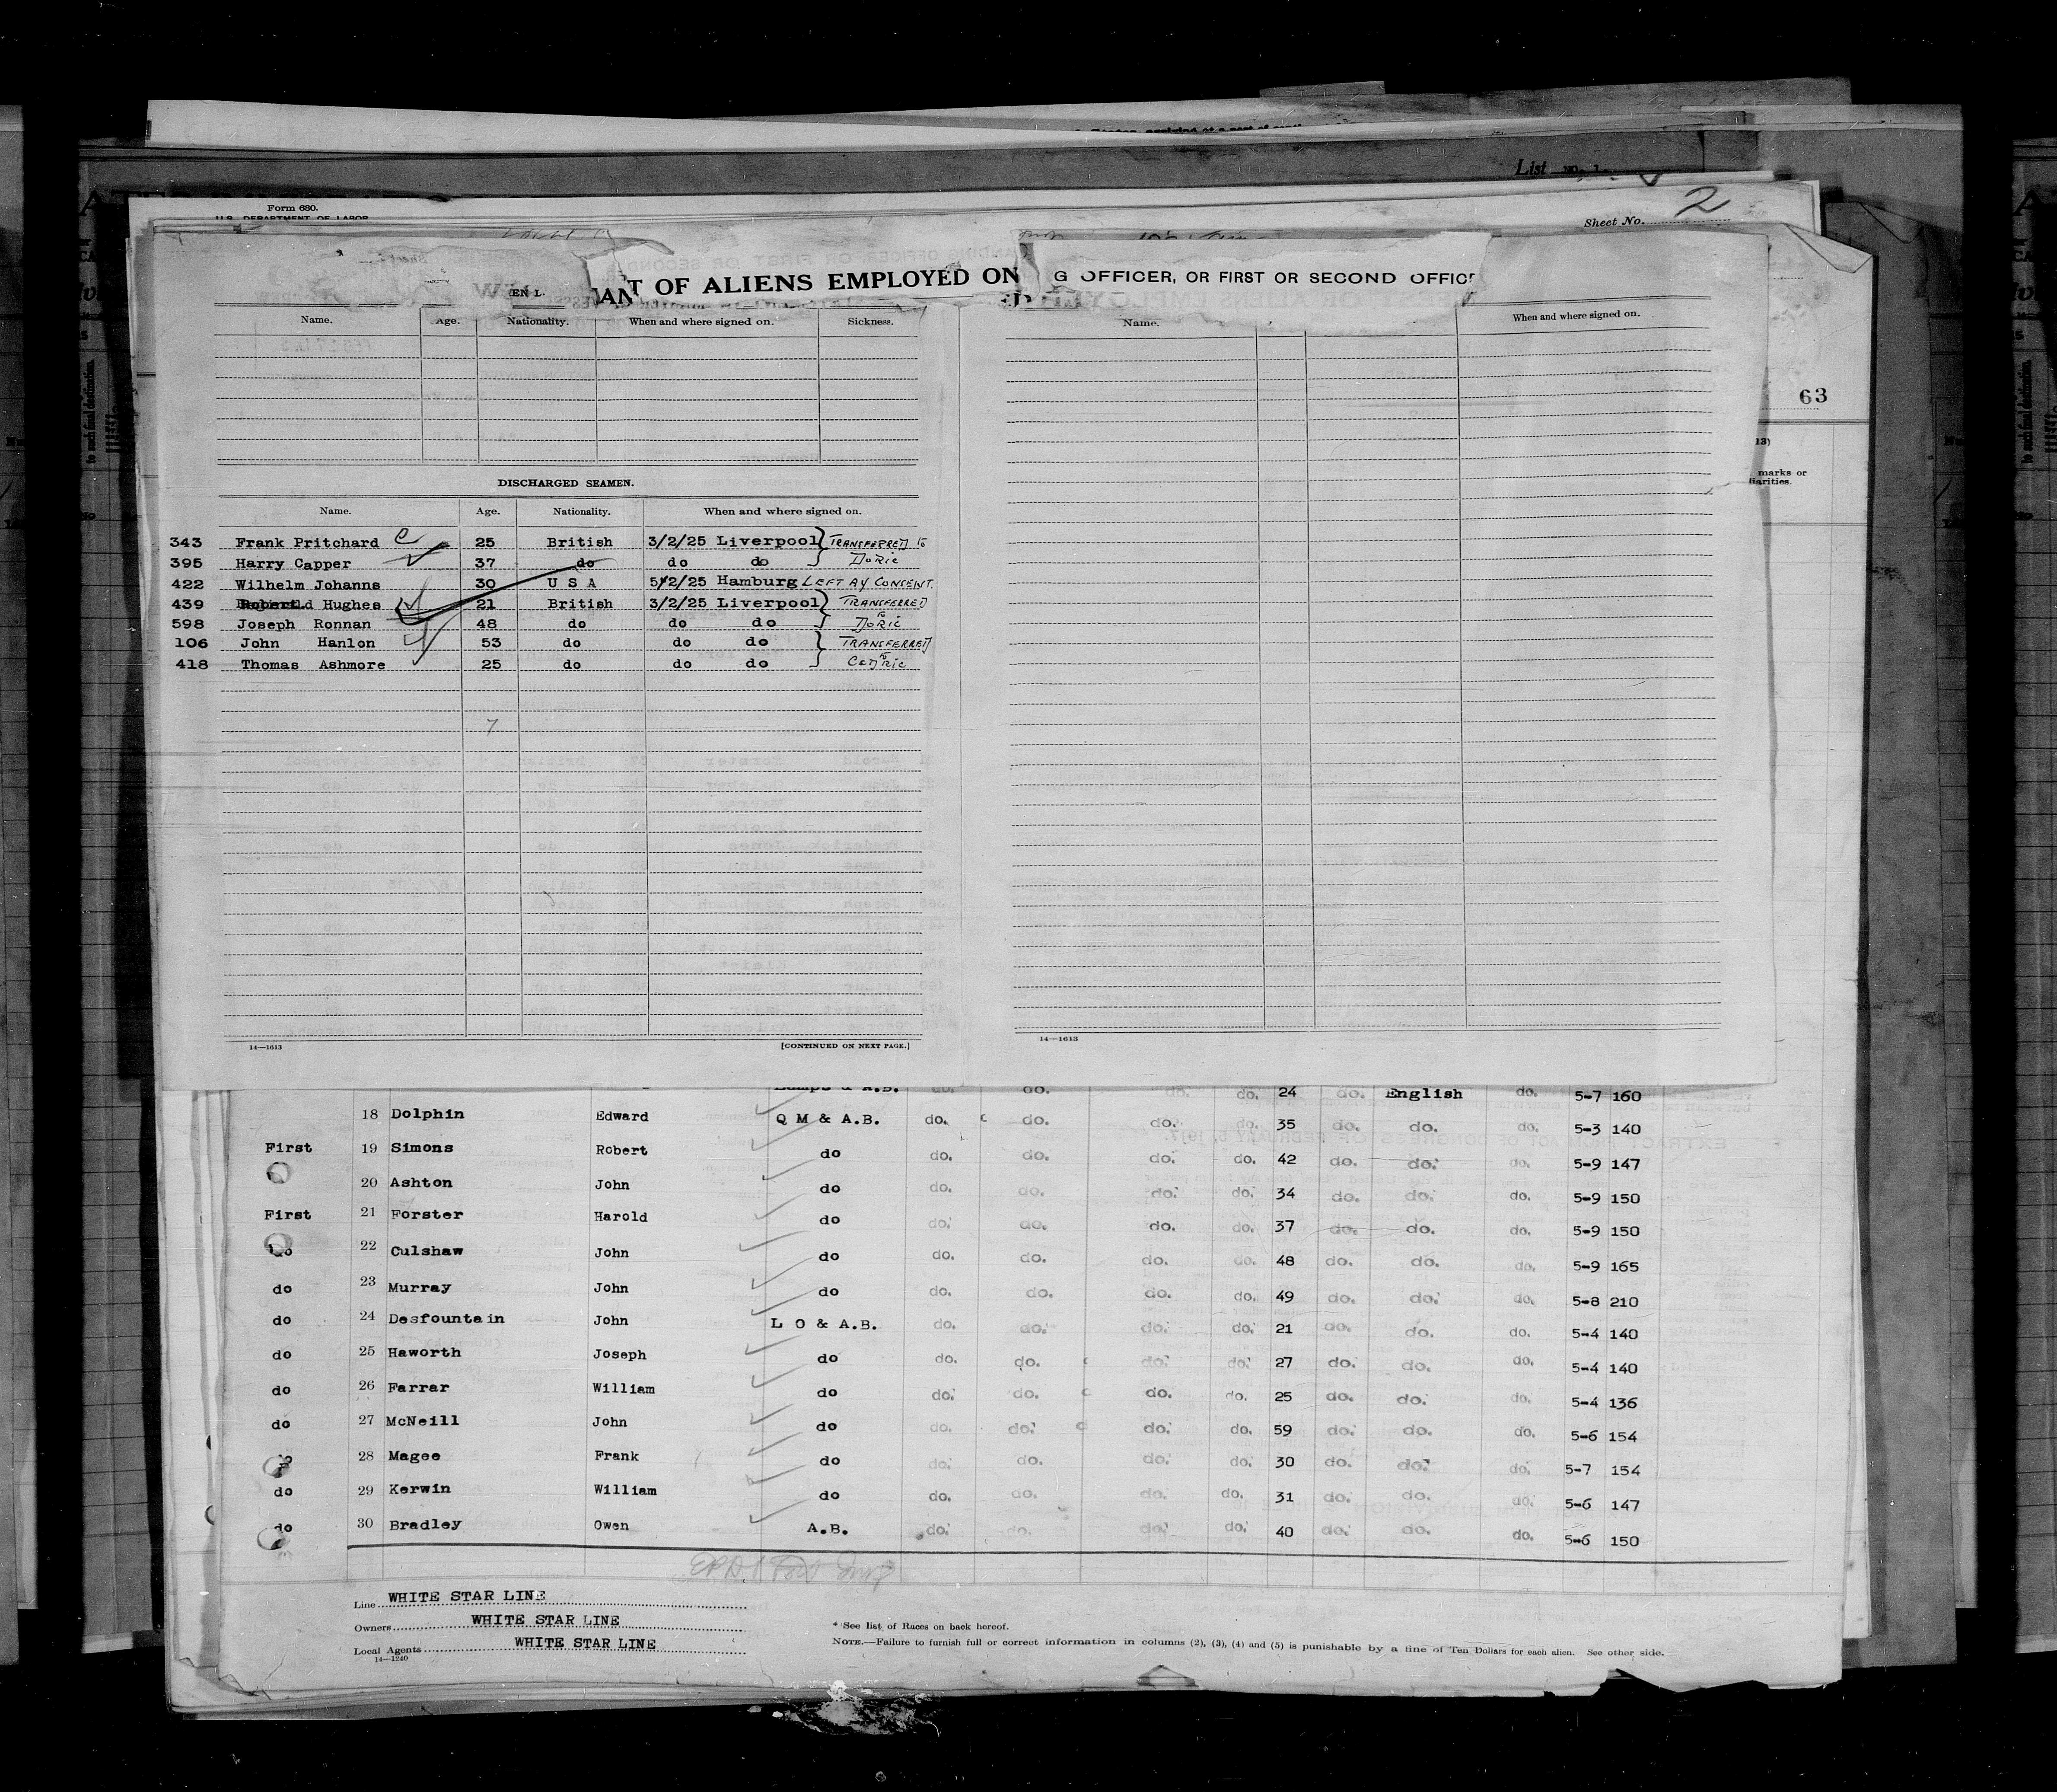 List No.
Form 680.
U.S. DEPARTMENT OF LABOR
Sheet No. 2
T OF ALIENS EMPLOYED ON G OFFICER, OR FIRST OR SECOND OFFIC
EN L.
63
Name. Age. Nationality. When and where signed on. Sickness.
Name. When and where signed on.
13)
marks or
liarities.
DISCHARGED SEAMEN.
Name. Age. Nationality. When and where signed on.
343 Frank Pritchard 25 British 3/2/25 Liverpool } TRANSFERRED to
395 Harry Capper 37 do do do DORIC
422 Wilhelm Johanns 30 U S A 5/2/25 Hamburg LEFT BY CONSENT.
439 Hughes 21 British 3/2/25 Liverpool } TRANSFERRED
598 Joseph Ronnan 48 do do do to DORIC
106 John Hanlon 53 do do do } TRANSFERRED
418 Thomas Ashmore 25 do do do to CEDRIC
7
14—1613 [CONTINUED ON NEXT PAGE.]
14—1613
Lamps & A.B. do. do. do. do. 24 do. English do. 5-7 160
18 Dolphin Edward Q M & A.B. do. do. do. do. 35 do. do. do. 5-3 140
First 19 Simons Robert do do. do. do. do. 42 do. do. do. 5-9 147
20 Ashton John do do. do. do. do. 34 do. do. do. 5-9 150
First 21 Forster Harold do do. do. do. do. 37 do. do. do. 5-9 150
do 22 Culshaw John do do. do. do. do. 48 do. do. do. 5-9 165
do 23 Murray John do do. do. do. do. 49 do. do. do. 5-8 210
do 24 Desfountain John L O & A.B. do. do. do. do. 21 do. do. do. 5-4 140
do 25 Haworth Joseph do do. do. do. do. 27 do. do. do. 5-4 140
do 26 Farrar William do do. do. do. do. 25 do. do. do. 5-4 136
do 27 McNeill John do do. do. do. do. 59 do. do. do. 5-6 154
28 Magee Frank do do. do. do. do. 30 do. do. do. 5-7 154
do 29 Kerwin William do do. do. do. do. 31 do. do. do. 5-6 147
do 30 Bradley Owen A.B. do. do. do. do. 40 do. do. do. 5-6 150
Line WHITE STAR LINE
Owners WHITE STAR LINE
Local Agents WHITE STAR LINE
14—1240
* See list of Races on back hereof.
NOTE.—Failure to furnish full or correct information in columns (2), (3), (4) and (5) is punishable by a fine of Ten Dollars for each alien. See other side.